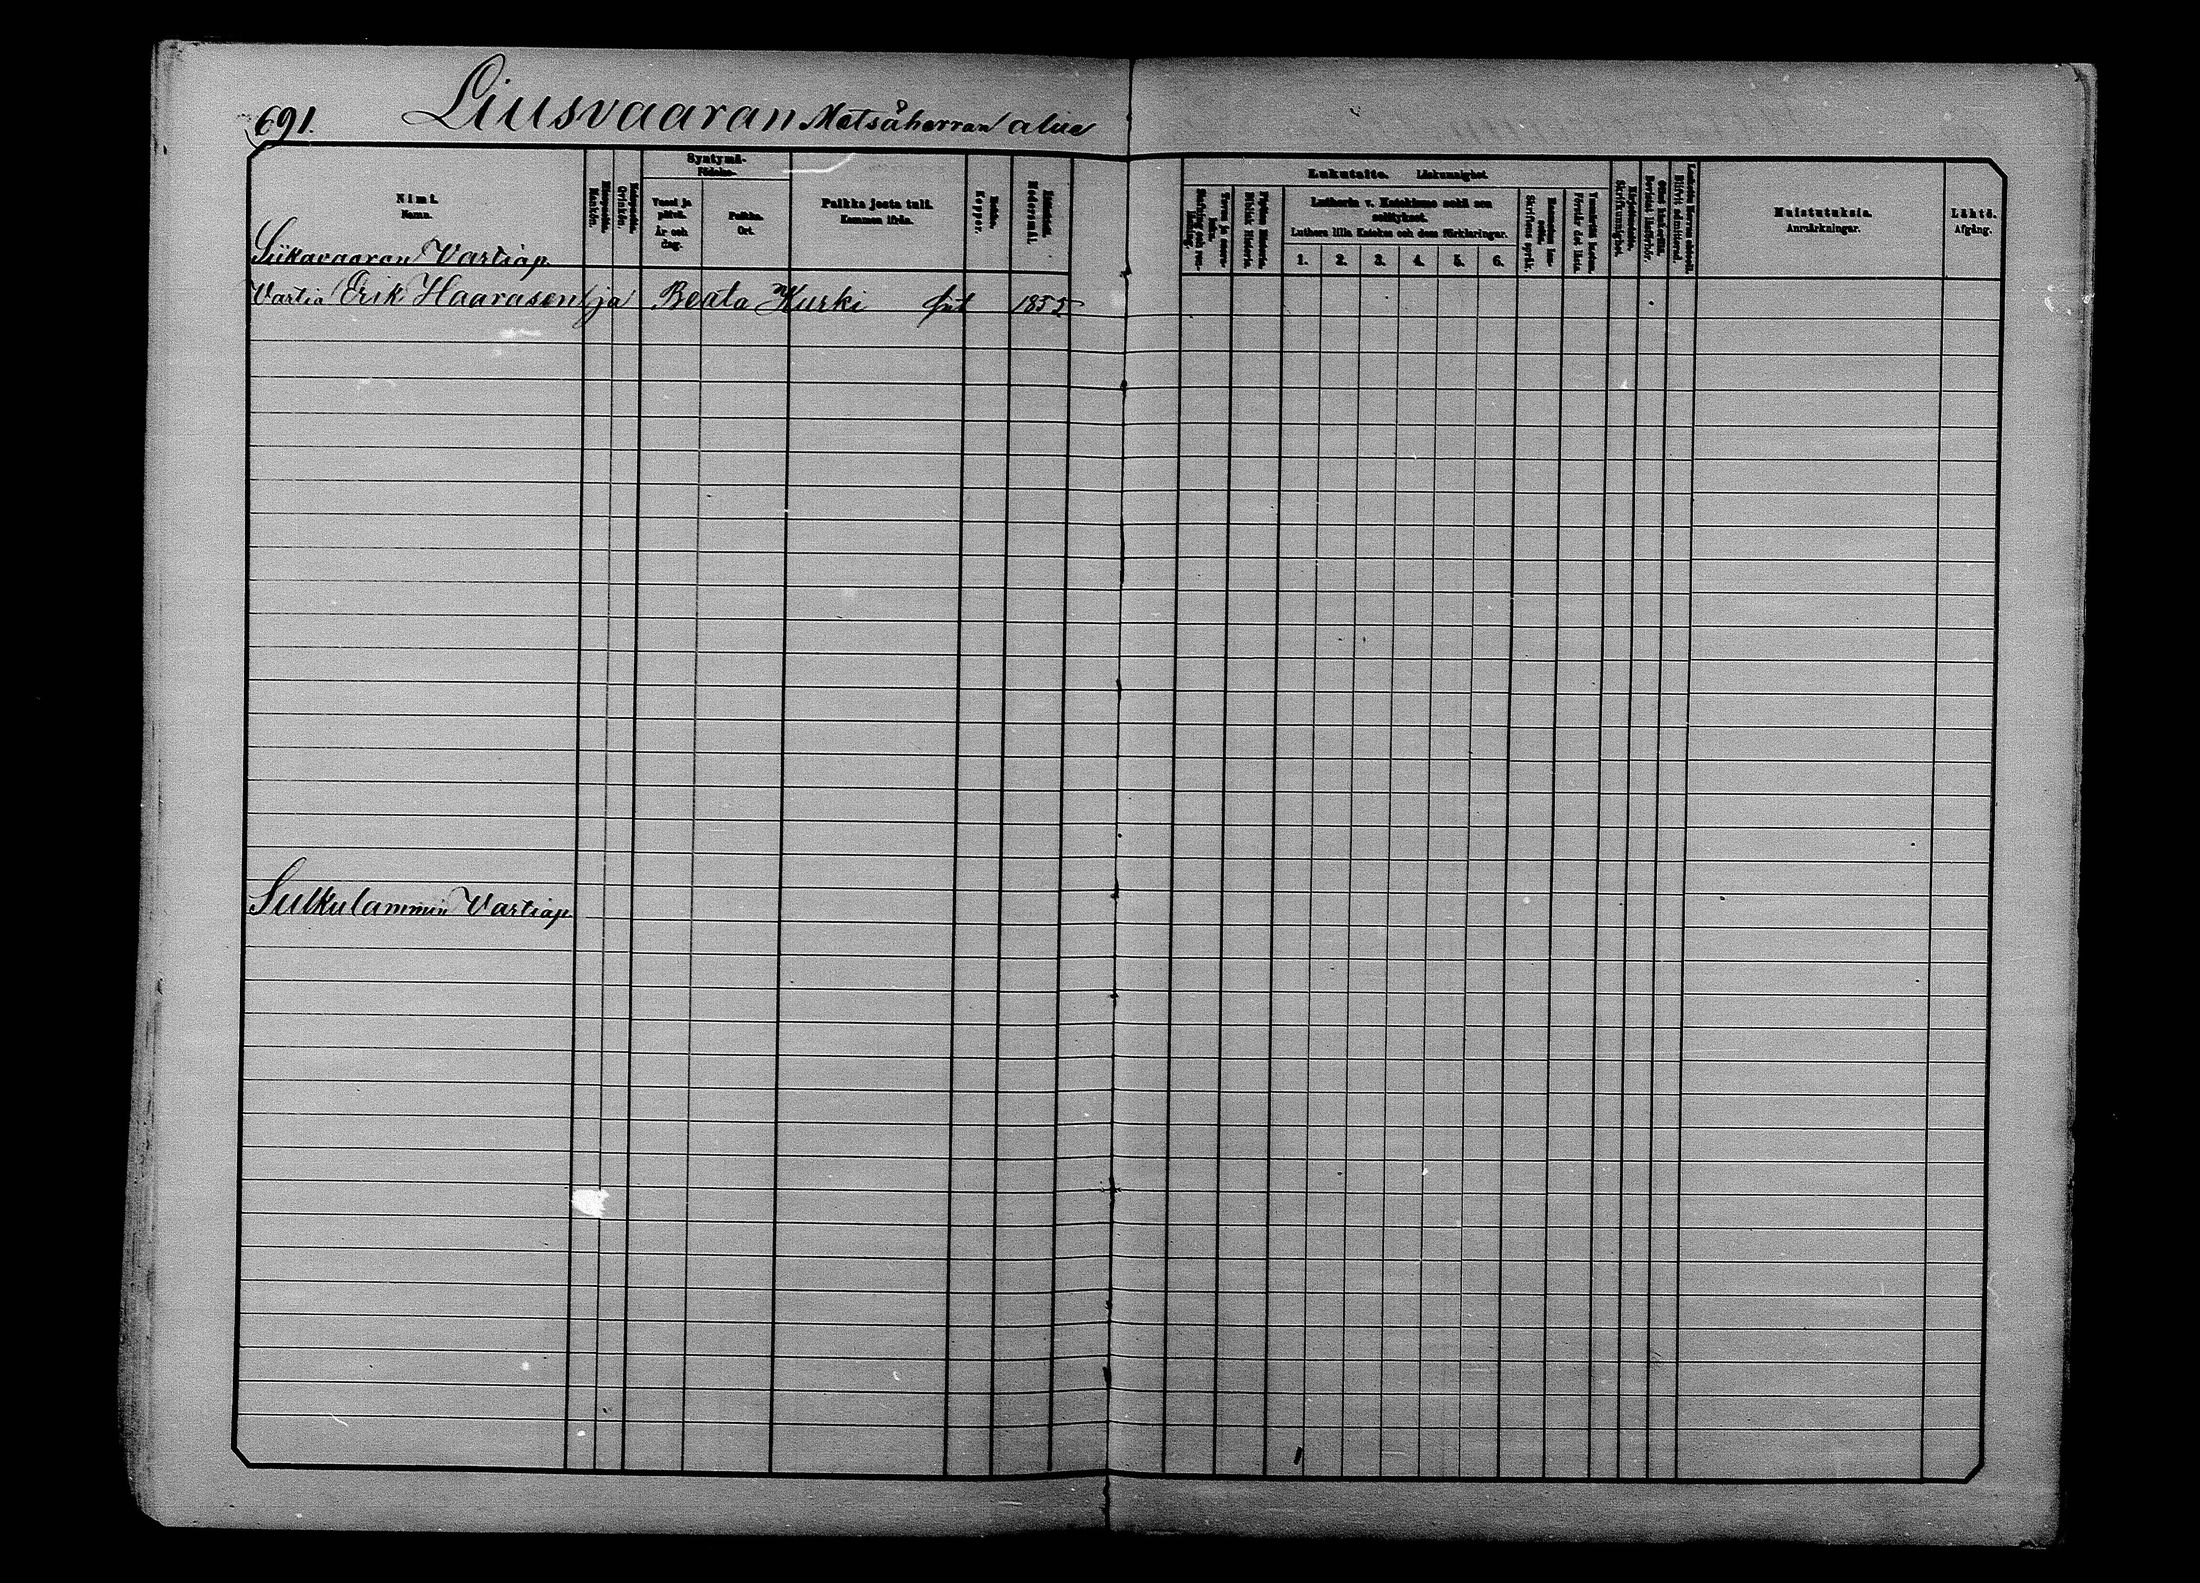 691. Liusvaaran Metsåherran alue
Syntymä-
Födelse-
Lukutaito. Läskunnighet.
Nimi.
Namn.
Miespuolia.
Mankön.
Vuosi ja
päivä.
År och
dag.
Paikka.
Ort.
Paikka josta tuli.
Kommen ifrån.
Rokko.
Koppor.
Modersmål.
Luthers lilla Katekes och dess förklaringar.
1. 2. 3. 4. 5. 6.
Skriftens språk.
Förstår det lästa.
Skrifkunnighet.
Muistutuksia.
Anmärkningar.
Lähtö.
Afgång.
Siikavaaran Vartiap.
Vartia Erik Haarasen ja Beata Kurki 1855
Sulkulammin Vartiap.